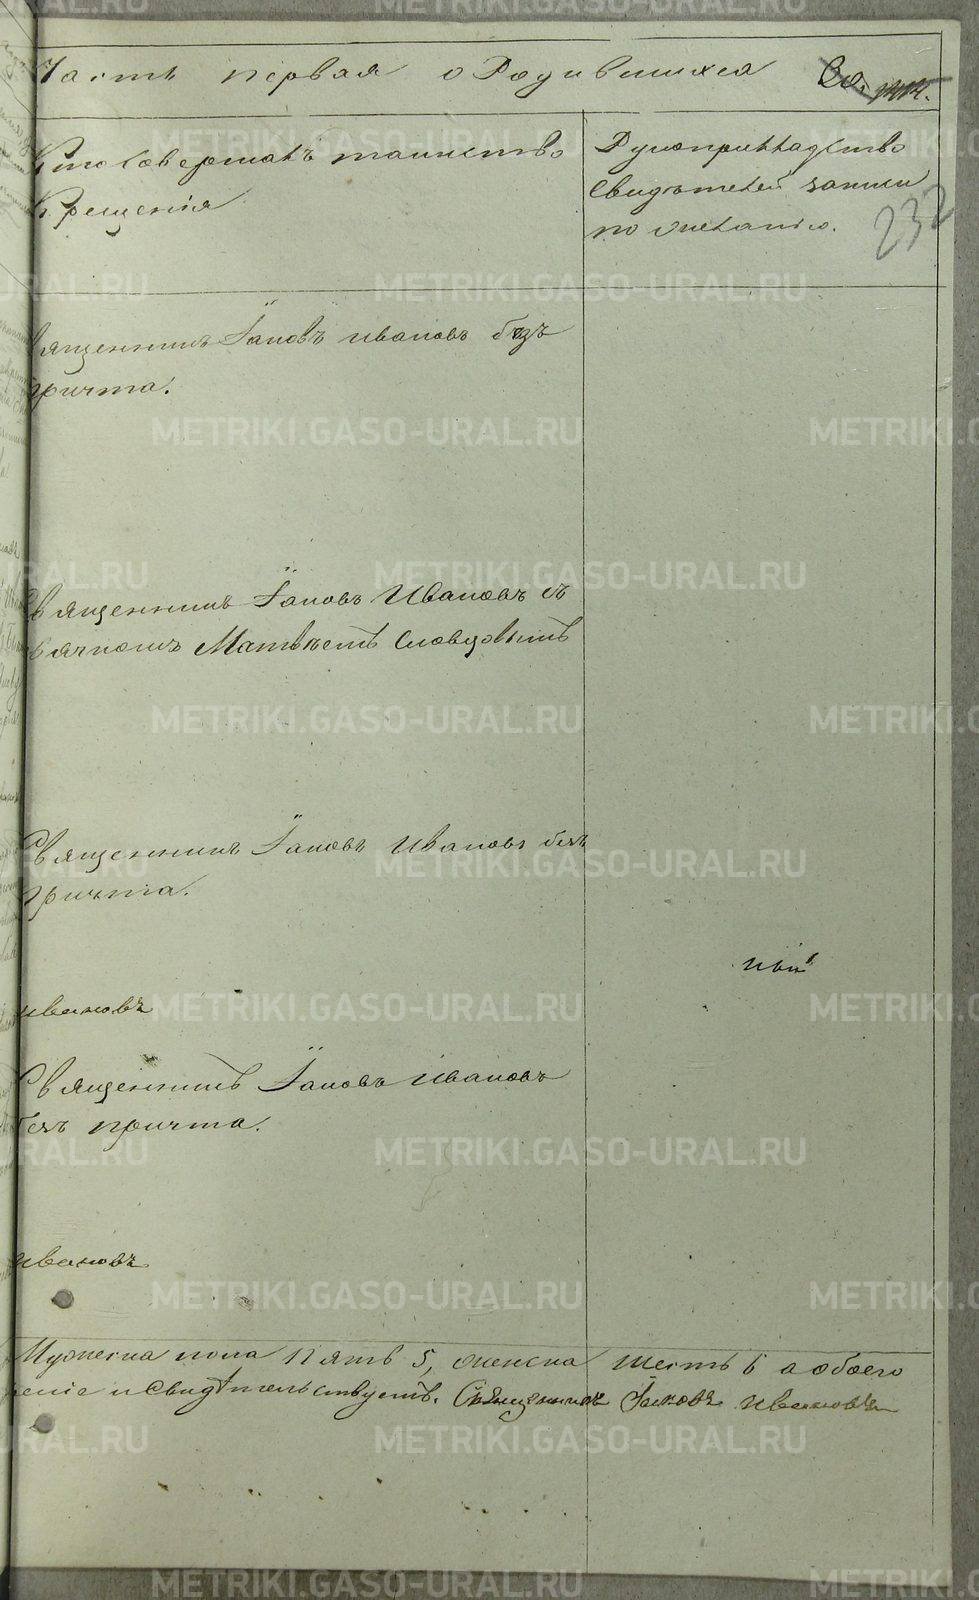 Часть первая о Родившихся
232
Кто совершалъ таинство
Крещенія
Рукоприкладство
свидѣтелей записи
по желанію.
вященникъ Іаковъ Ивановъ безъ
причта.
Священникъ Іаковъ Ивановъ съ
дьячкомъ Матвѣемъ Словцовымъ
Священникъ Іаковъ Ивановъ безъ
причта.
Ивановъ
Священникъ Іаковъ Ивановъ
безъ причта.
Ивановъ
Мужеска пола пять 5, женска шесть 6 а обоего
и свидѣтельствуетъ. Священникъ Іаковъ Ивановъ
METRIKI.GASO-URAL.RU